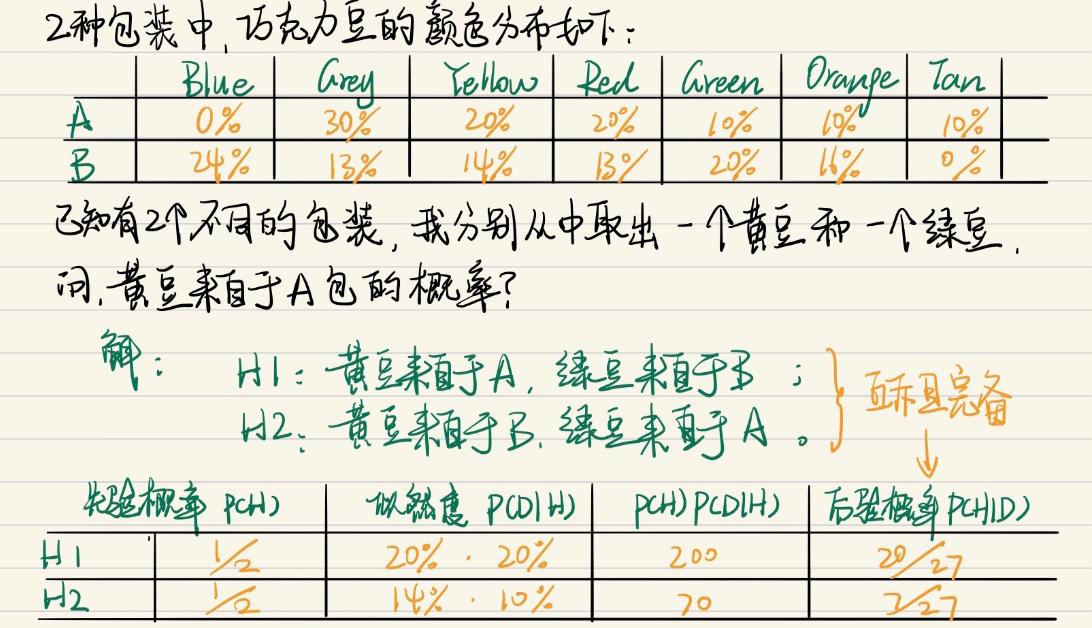 2种包装中,巧克力豆的颜色分布如下:
Blue Grey Yellow Red Green Orange Tan
A 0% 30% 20% 20% 10% 10% 10%
B 24% 13% 14% 13% 20% 16% 0%
已知有2个不同的包装,我分别从中取出一个黄豆和一个绿豆.
问,黄豆来自于A包的概率?
解: H1:黄豆来自于A,绿豆来自于B ;
H2:黄豆来自于B,绿豆来自于A 。
互斥且完备
先验概率 P(H) 似然度 P(D|H) P(H)P(D|H) 后验概率P(H|D)
H1 1/2 20% · 20% 200 20/27
H2 1/2 14% · 10% 70 7/27